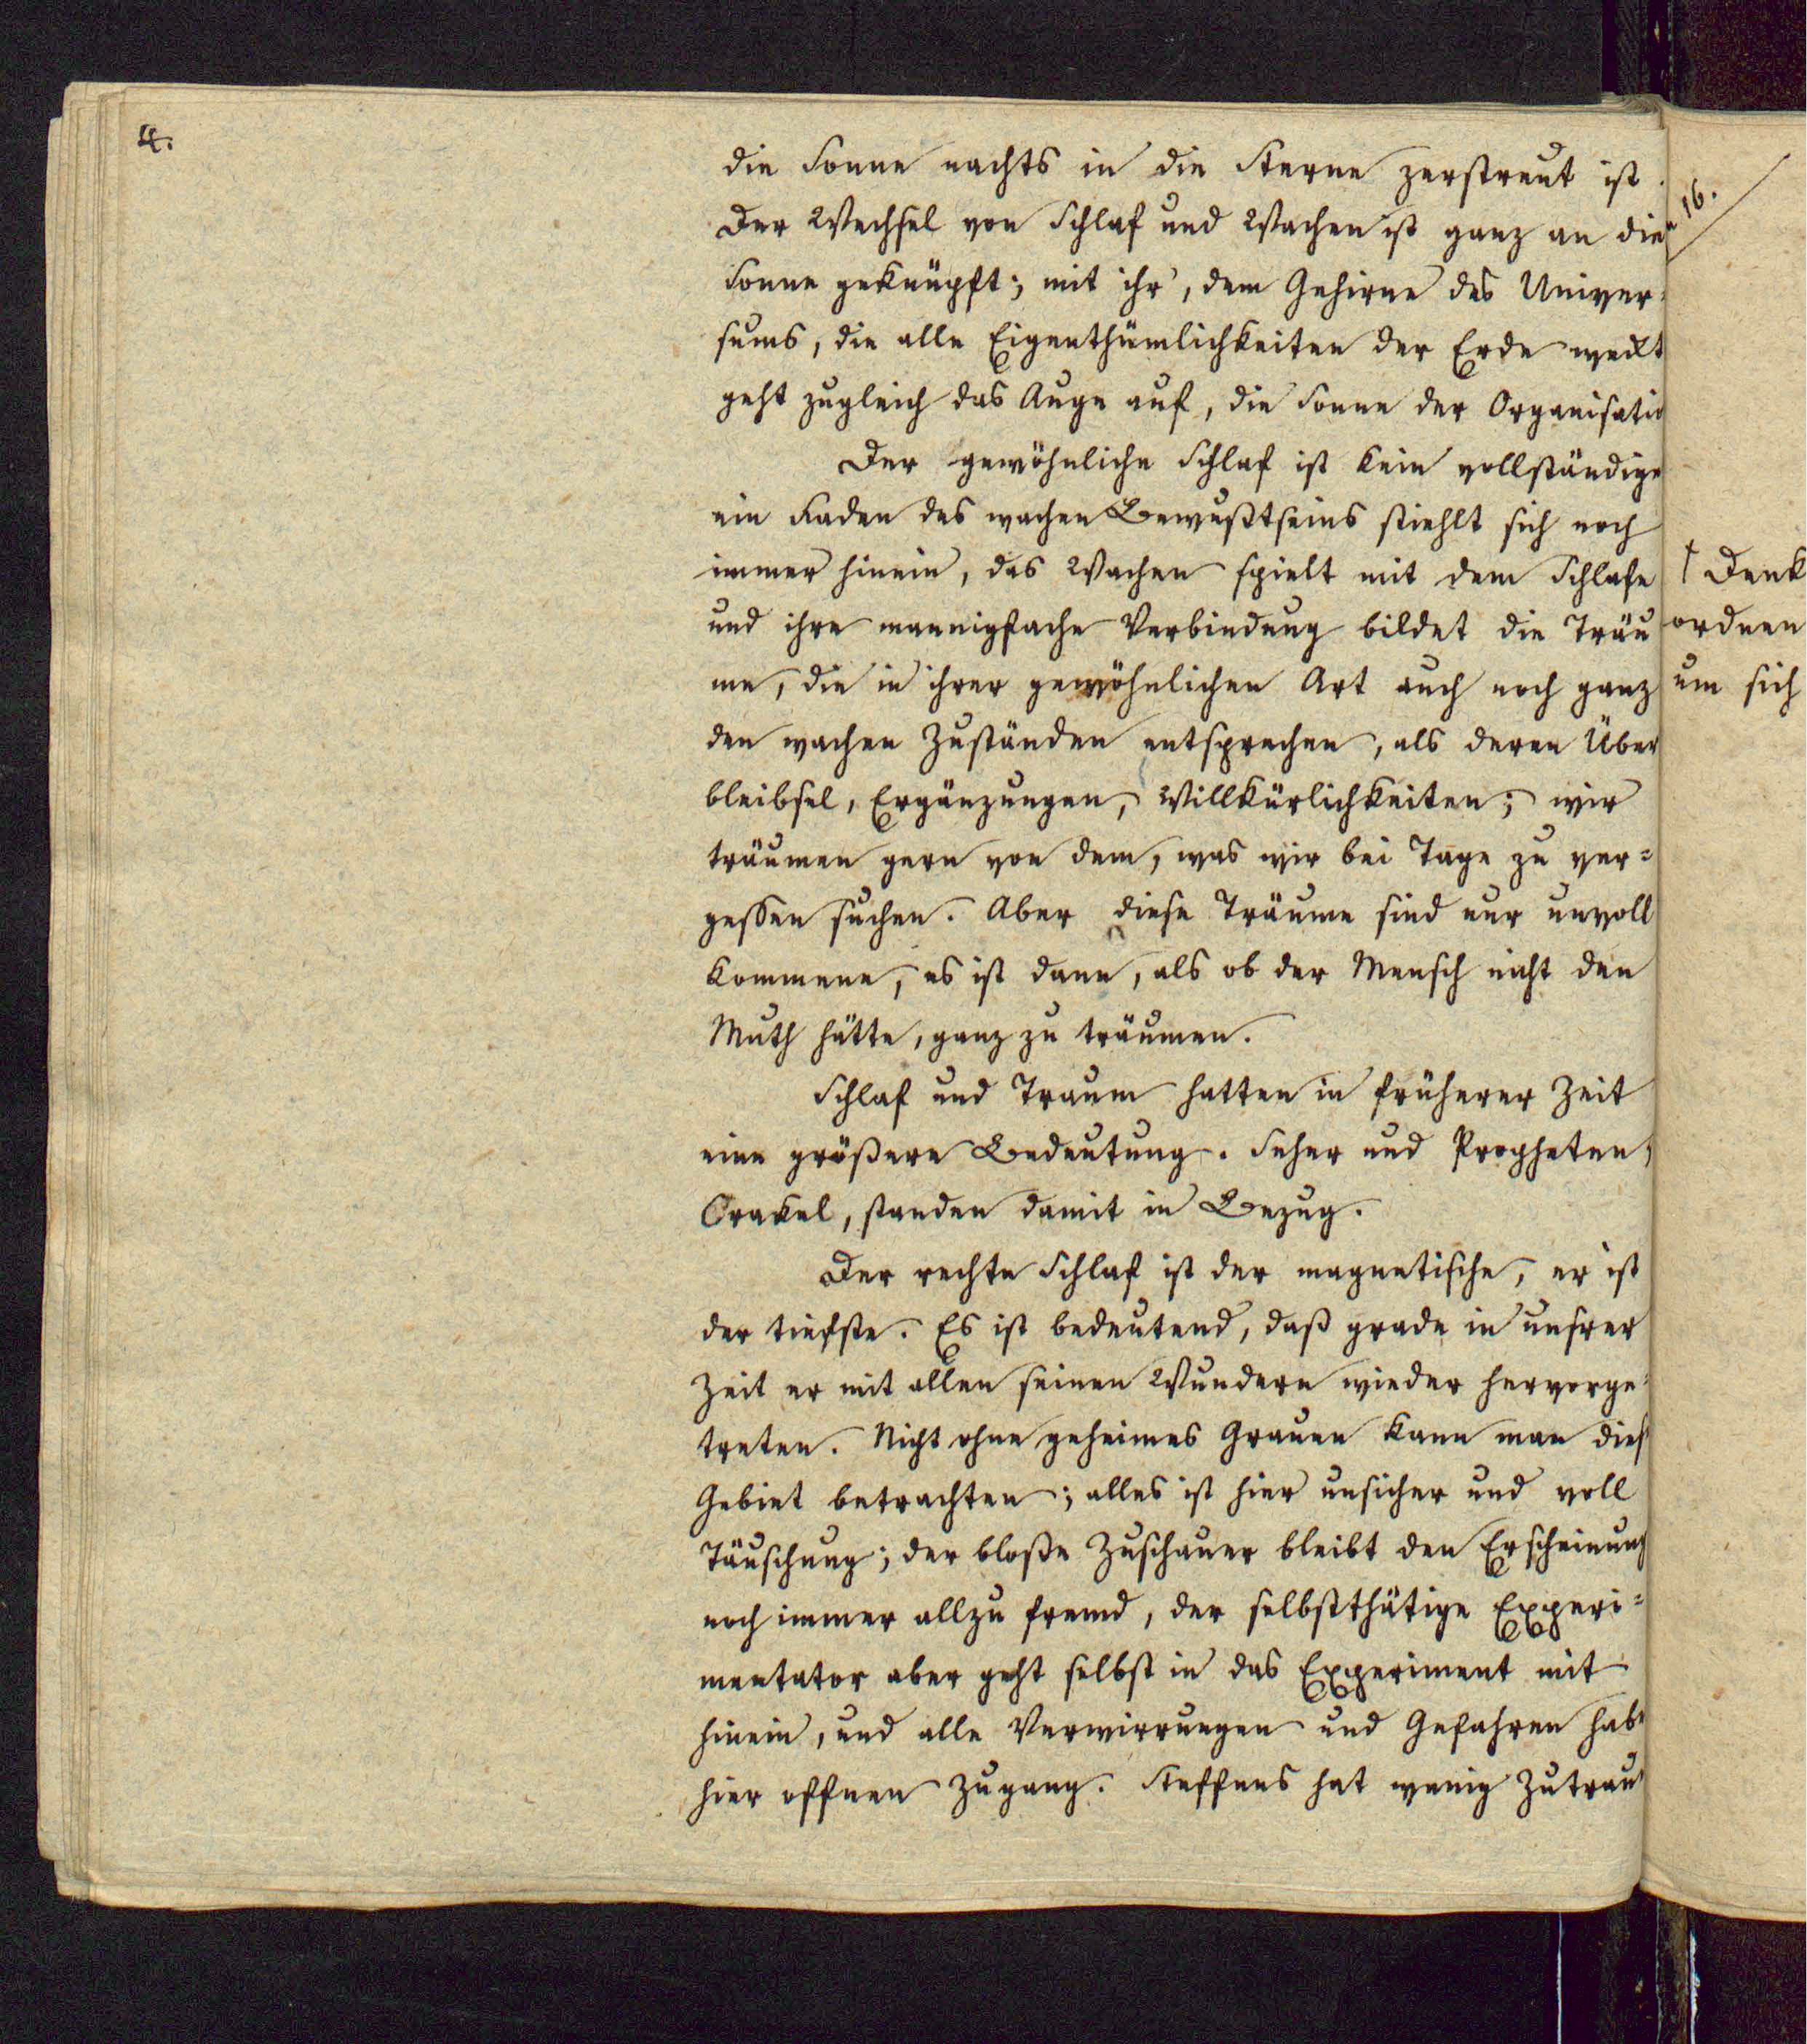 4.
die Sonne nachts in die Sterne zerstreut ist.
Der Wechsel von Schlaf und Wachen ist ganz an die
Sonne geknüpft; mit ihr, dem Gehirne des Univer-
sums, die alle Eigenthümlichkeiten der Erde weckt
geht zugleich das Auge auf, die Sonne der Organisatio
Der gewöhnliche Schlaf ist kein vollständige
ein Faden des wachen Bewußtseins stiehlt sich noch
immer hinein, das Wachen spielt mit dem Schlafe
und ihre mannigfache Verbindung bildet die Träu
me, die in ihrer gewöhnlichen Art auch noch ganz
den wachen Zuständen entsprechen, als deren Über
bleibsel, Ergänzungen, Willkürlichkeiten; wir
träumen gern von dem, was wir bei Tage zu ver=
gessen suchen. Aber diese Träume sind nur unvoll
kommene, es ist dann, als ob der Mensch nicht den
Muth hätte, ganz zu träumen.
Schlaf und Traum hatten in früherer Zeit
eine größere Bedeutung. Seher und Propheten,
Orakel, standen damit in Bezug.
Der rechte Schlaf ist der magnetische, er ist
der tiefste. Es ist bedeutend, daß grade in unsrer
Zeit er mit allen seinen Wundern wieder hervorge-
treten. Nicht ohne geheimes Grauen kann man dies
Gebiet betrachten; alles ist hier unsicher und voll
Täuschung; der bloße Zuschauer bleibt den Erscheinung
noch immer allzu fremd, der selbstthätige Experi=
mentator aber geht selbst in das Experiment mit
hinein, und alle Verwirrungen und Gefahren habe
hier offnen Zugang. Steffens hat wenig Zutrau
16.
Denk
ordnen
um sich